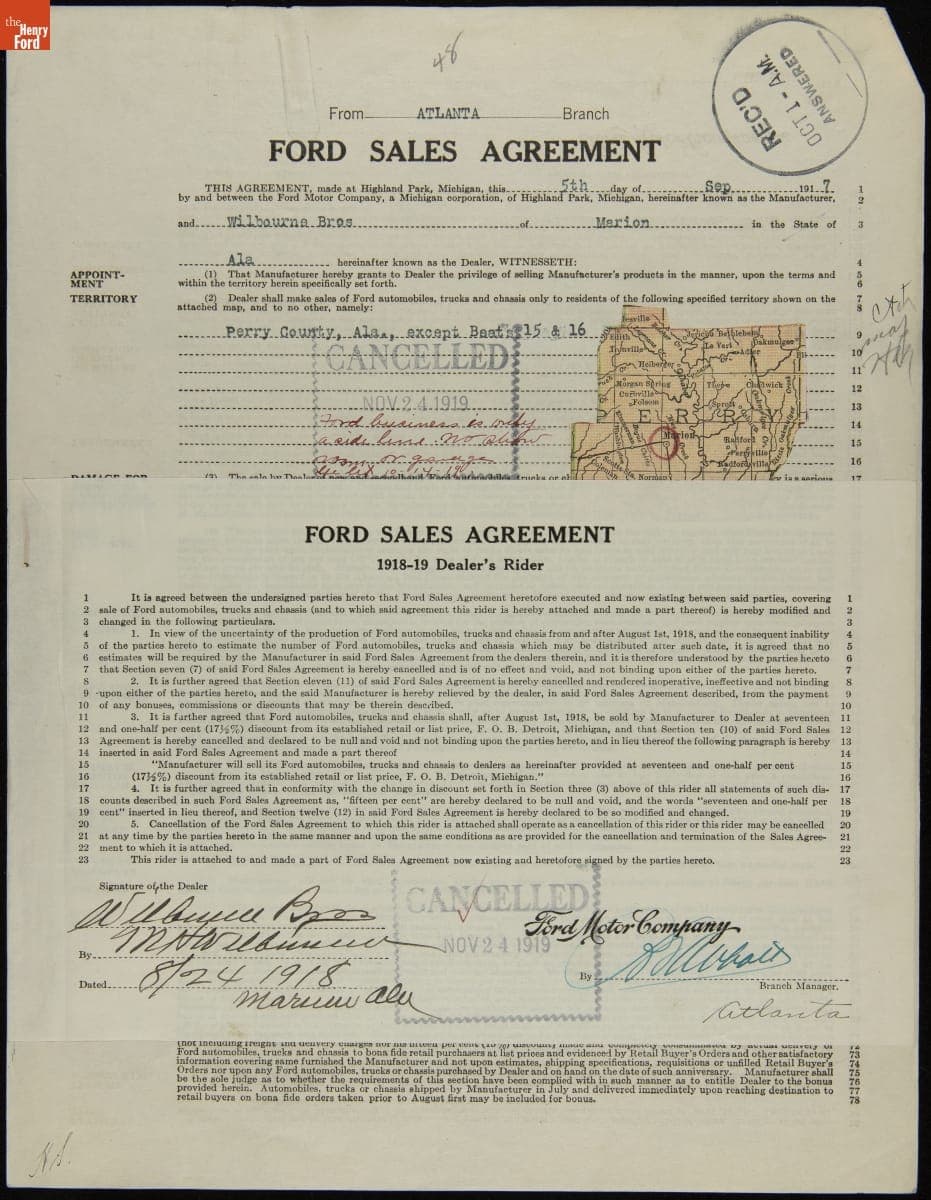 the
Henry
Ford
48
REC'D
OCT 1 - A.M.
ANSWERED
From ATLANTA Branch
FORD SALES AGREEMENT
THIS AGREEMENT, made at Highland Park, Michigan, this 5th day of Sep 1917 1
by and between the Ford Motor Company, a Michigan corporation, of Highland Park, Michigan, hereinafter known as the Manufacturer, 2
and Wilbourne Bros of Marion in the State of 3
Ala hereinafter known as the Dealer, WITNESSETH: 4
APPOINT-
MENT
(1) That Manufacturer hereby grants to Dealer the privilege of selling Manufacturer's products in the manner, upon the terms and 5
within the territory herein specifically set forth. 6
TERRITORY
(2) Dealer shall make sales of Ford automobiles, trucks and chassis only to residents of the following specified territory shown on the 7
attached map, and to no other, namely: 8
Perry County, Ala., except Beats 15 & 16 9
10
11
12
13
14
15
16
CANCELLED
NOV 24 1919
Ford business is only
a side line. No show
room or garage
Jericho
Le Vert
Oakmulgee
Heiberger
Morgan Spring
Folsom
Sprott
Chadwick
ERRY
Marion
Radford
Perryville
Radfordville
Norman
17
FORD SALES AGREEMENT
1918-19 Dealer's Rider
1 It is agreed between the undersigned parties hereto that Ford Sales Agreement heretofore executed and now existing between said parties, covering 1
2 sale of Ford automobiles, trucks and chassis (and to which said agreement this rider is hereby attached and made a part thereof) is hereby modified and 2
3 changed in the following particulars. 3
4 1. In view of the uncertainty of the production of Ford automobiles, trucks and chassis from and after August 1st, 1918, and the consequent inability 4
5 of the parties hereto to estimate the number of Ford automobiles, trucks and chassis which may be distributed after such date, it is agreed that no 5
6 estimates will be required by the Manufacturer in said Ford Sales Agreement from the dealers therein, and it is therefore understood by the parties hereto 6
7 that Section seven (7) of said Ford Sales Agreement is hereby cancelled and is of no effect and void, and not binding upon either of the parties hereto. 7
8 2. It is further agreed that Section eleven (11) of said Ford Sales Agreement is hereby cancelled and rendered inoperative, ineffective and not binding 8
9 upon either of the parties hereto, and the said Manufacturer is hereby relieved by the dealer, in said Ford Sales Agreement described, from the payment 9
10 of any bonuses, commissions or discounts that may be therein described. 10
11 3. It is further agreed that Ford automobiles, trucks and chassis shall, after August 1st, 1918, be sold by Manufacturer to Dealer at seventeen 11
12 and one-half per cent (17½%) discount from its established retail or list price, F. O. B. Detroit, Michigan, and that Section ten (10) of said Ford Sales 12
13 Agreement is hereby cancelled and declared to be null and void and not binding upon the parties hereto, and in lieu thereof the following paragraph is hereby 13
14 inserted in said Ford Sales Agreement and made a part thereof 14
15 "Manufacturer will sell its Ford automobiles, trucks and chassis to dealers as hereinafter provided at seventeen and one-half per cent 15
16 (17½%) discount from its established retail or list price, F. O. B. Detroit, Michigan." 16
17 4. It is further agreed that in conformity with the change in discount set forth in Section three (3) above of this rider all statements of such dis- 17
18 counts described in such Ford Sales Agreement as, "fifteen per cent" are hereby declared to be null and void, and the words "seventeen and one-half per 18
19 cent" inserted in lieu thereof, and Section twelve (12) in said Ford Sales Agreement is hereby declared to be so modified and changed. 19
20 5. Cancellation of the Ford Sales Agreement to which this rider is attached shall operate as a cancellation of this rider or this rider may be cancelled 20
21 at any time by the parties hereto in the same manner and upon the same conditions as are provided for the cancellation and termination of the Sales Agree- 21
22 ment to which it is attached. 22
23 This rider is attached to and made a part of Ford Sales Agreement now existing and heretofore signed by the parties hereto. 23
Signature of the Dealer
Wilbourne Bros
By M H Wilbourne
Dated 8/24 1918
Marion Ala
CANCELLED
NOV 24 1919
Ford Motor Company
By
Branch Manager.
Atlanta
(not including freight and delivery charges nor his fifteen per cent (15%) discount) made and completely consummated by actual delivery of 72
Ford automobiles, trucks and chassis to bona fide retail purchasers at list prices and evidenced by Retail Buyer's Orders and other satisfactory 73
information covering same furnished the Manufacturer and not upon estimates, shipping specifications, requisitions or unfilled Retail Buyer's 74
Orders nor upon any Ford automobiles, trucks or chassis purchased by Dealer and on hand on the date of such anniversary. Manufacturer shall 75
be the sole judge as to whether the requirements of this section have been complied with in such manner as to entitle Dealer to the bonus 76
provided herein. Automobiles, trucks or chassis shipped by Manufacturer in July and delivered immediately upon reaching destination to 77
retail buyers on bona fide orders taken prior to August first may be included for bonus. 78